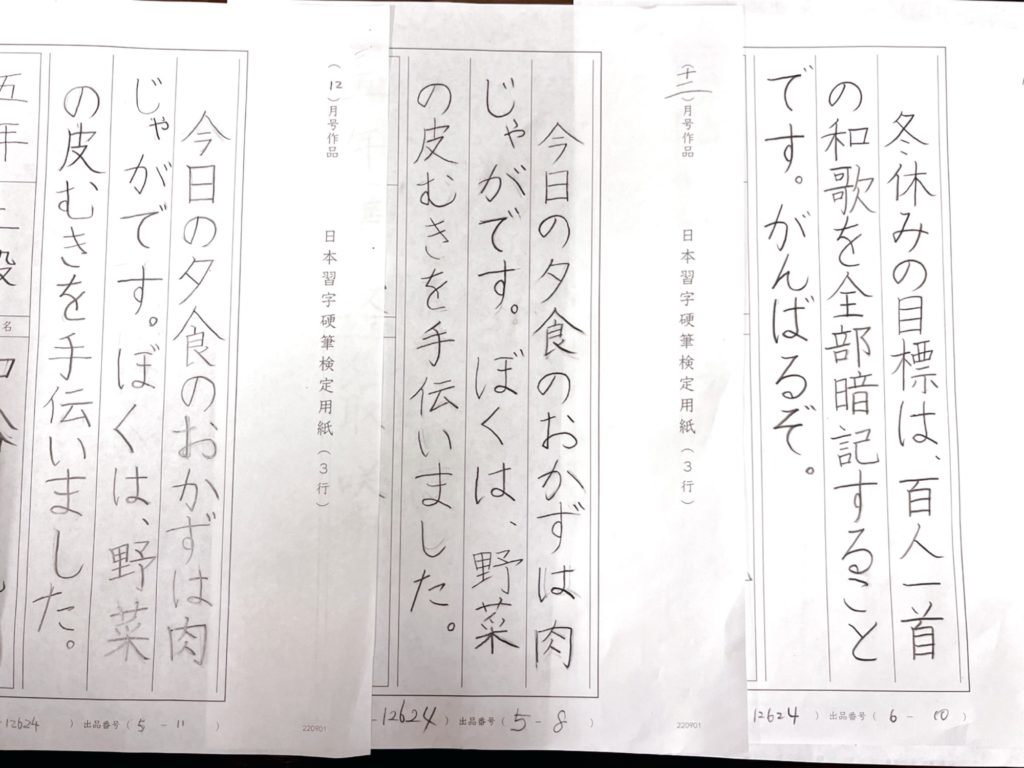 冬休みの目標は、百人一首
の和歌を全部暗記すること
です。がんばるぞ。
12624 ) 出品番号 ( 6 - 10 )
(十二)月号作品
日本習字硬筆検定用紙(3行)
今日の夕食のおかずは肉
じゃがです。ぼくは、野菜
の皮むきを手伝いました。
-12624 ) 出品番号 ( 5 - 8 )
220901
(12)月号作品
日本習字硬筆検定用紙(3行)
今日の夕食のおかずは肉
じゃがです。ぼくは、野菜
の皮むきを手伝いました。
五年
名
-12624 ) 出品番号 ( 5 - 11 )
220901